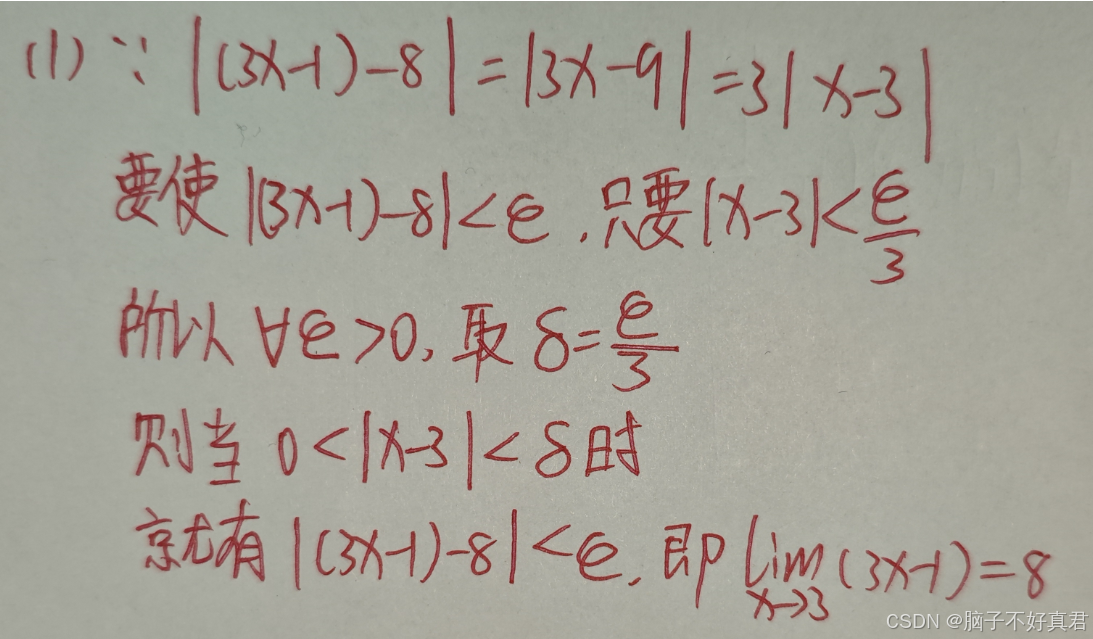 (1) ∵ |(3x-1)-8| = |3x-9| = 3|x-3|
要使 |(3x-1)-8| < ε , 只要 |x-3| < ε/3
所以 ∀ε > 0, 取 δ = ε/3
则当 0 < |x-3| < δ 时
就有 |(3x-1)-8| < ε, 即 lim x→3 (3x-1) = 8
CSDN @脑子不好真君